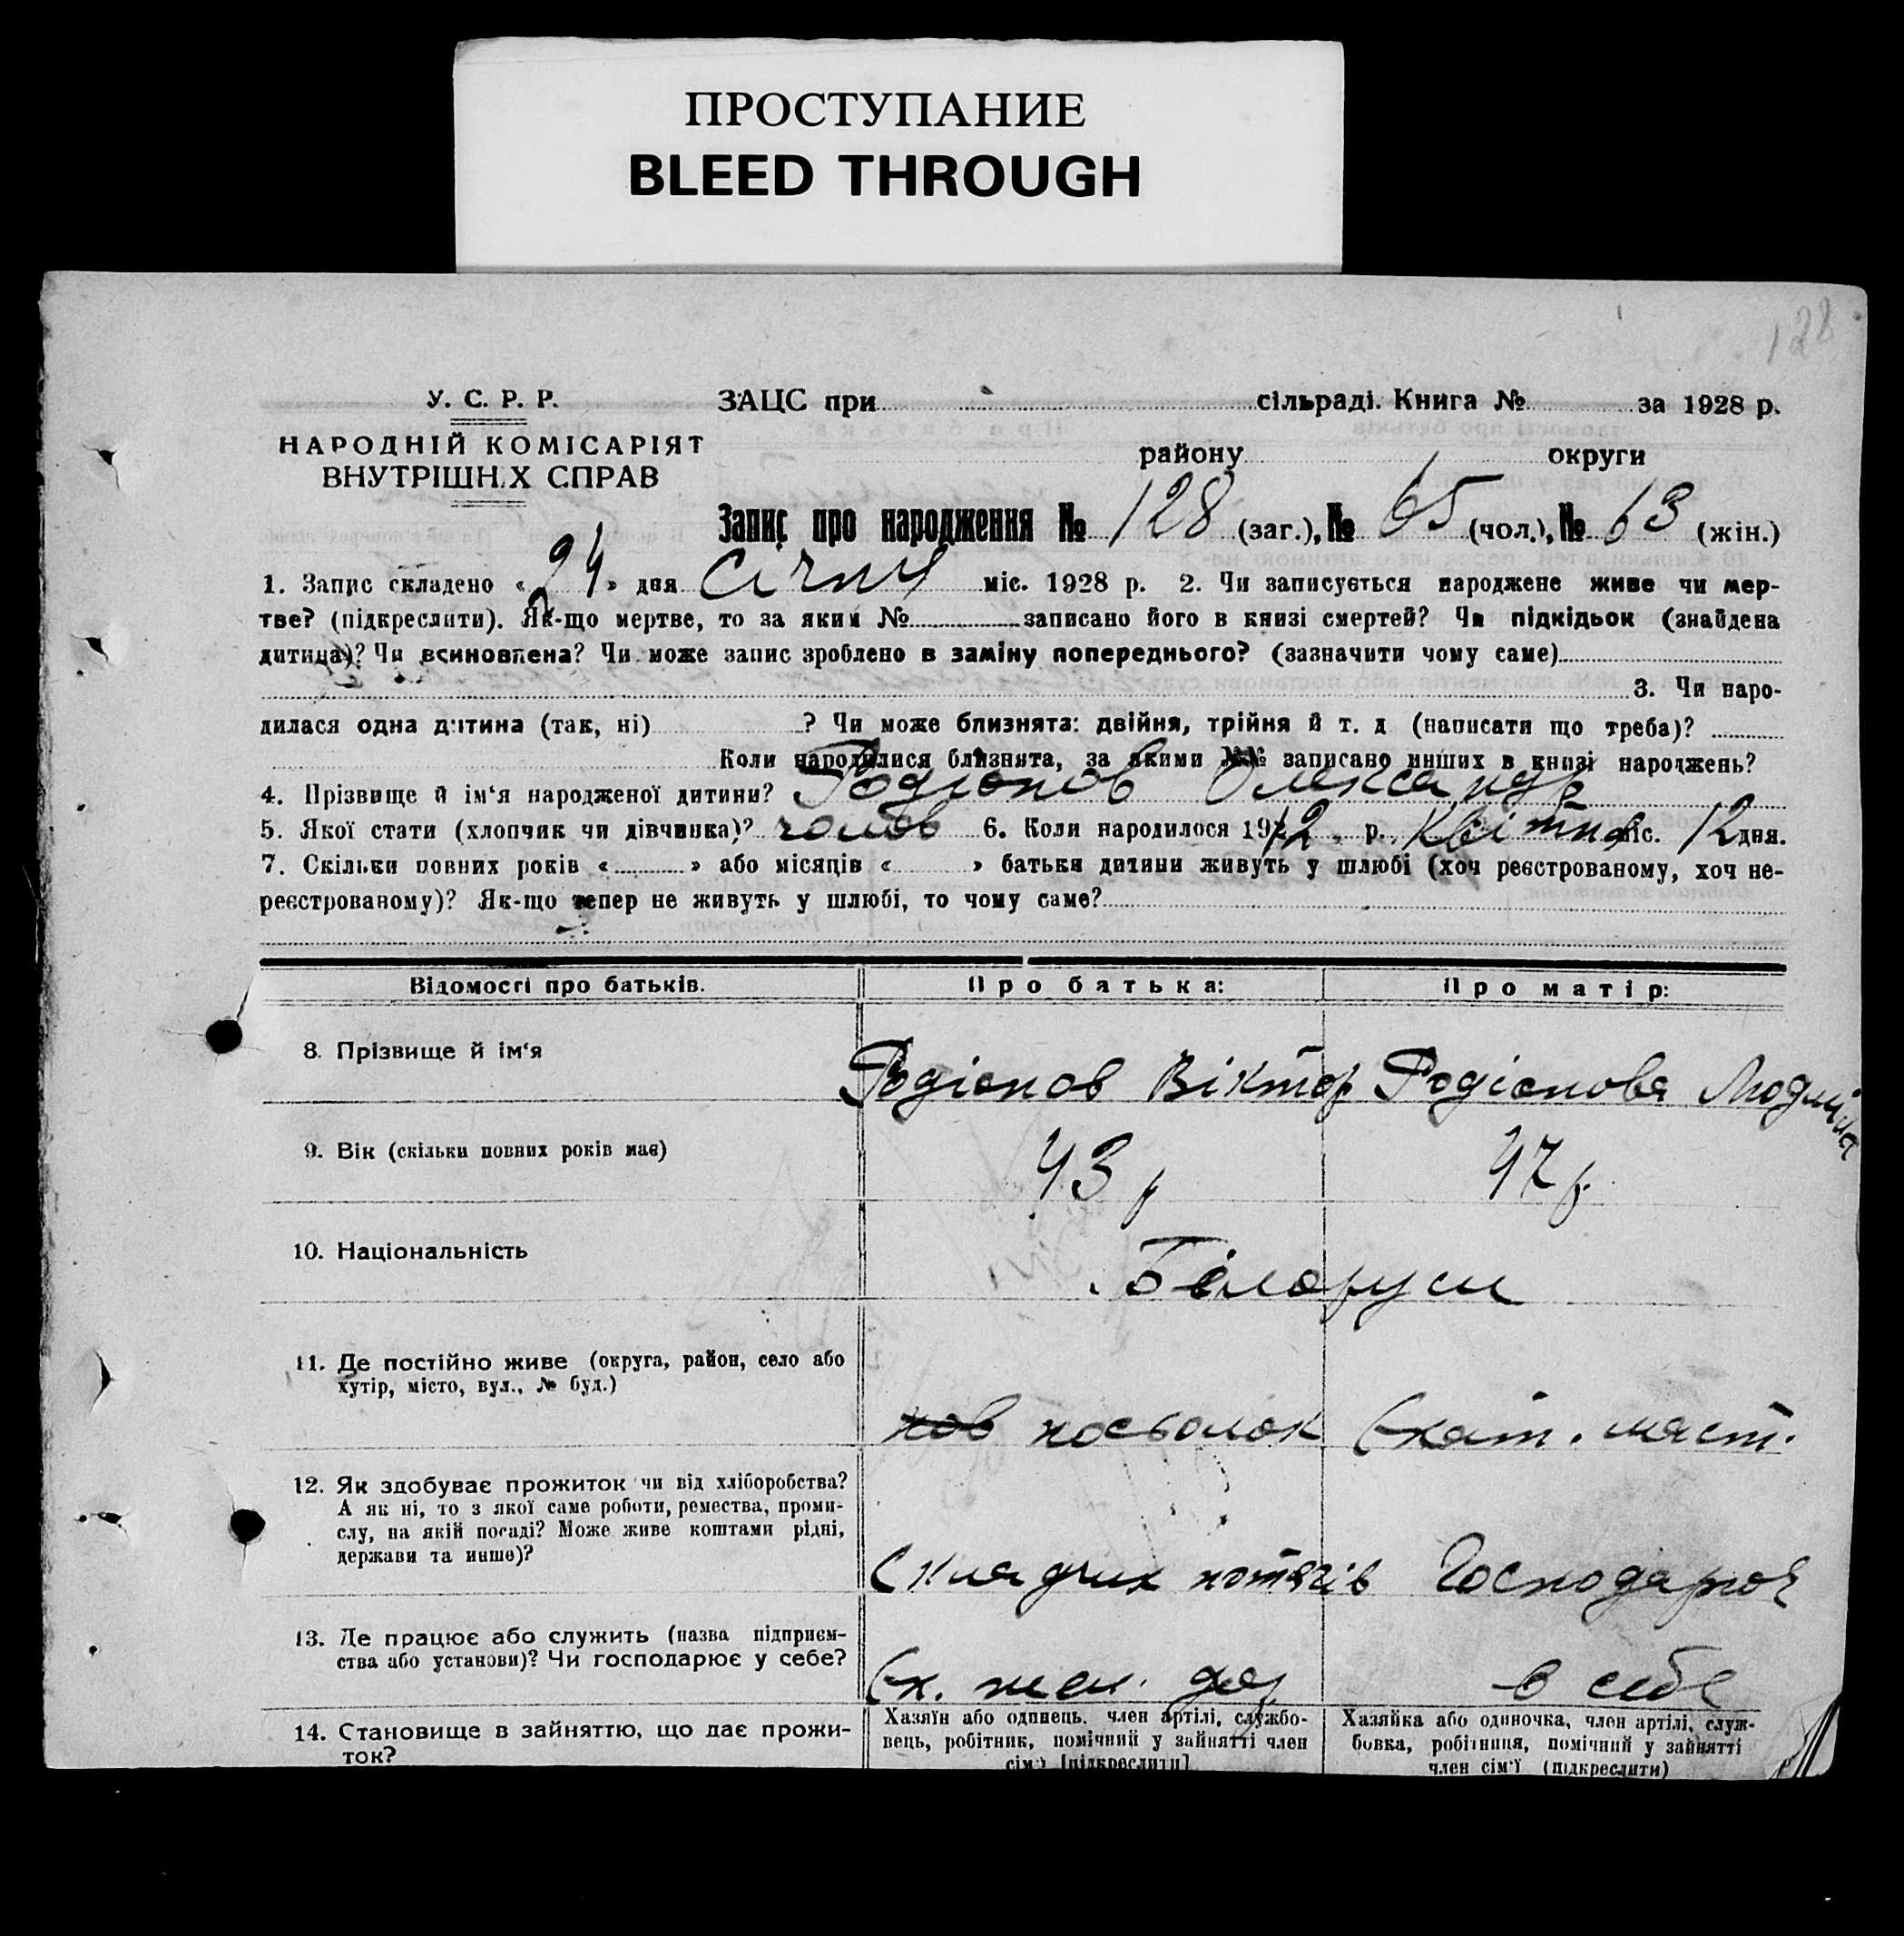 ПРОСТУПАНИЕ
BLEED THROUGH
128
У. С. Р. Р.
НАРОДНІЙ КОМІСАРІЯТ
ВНУТРІШН.Х СПРАВ
ЗАЦС при сільраді. Книга № за 1928 р.
району округи
Запис про народження № 128 (заг.), № 65 (чол.), № 63 (жін.)
1. Запис складено « 24 » дня Січня міс. 1928 р. 2. Чи записується народжене живе чи мер-
тве? (підкреслити). Як-що мертве, то за яким № записано його в книзі смертей? Чи підкідьок (знайдена
дитина)? Чи всиновлена? Чи може запис зроблено в заміну попереднього? (зазначити чому саме)
3. Чи наро-
дилася одна дитина (так, ні) ? Чи може близнята: двійня, трійня й т. д (написати що треба)?
Коли народилися близнята, за якими №№ записано инших в книзі народжень?
4. Прізвище й ім‘я народженої дитини? Родіонов Олександр
5. Якої стати (хлопчик чи дівчинка)? чолов 6. Коли народилося 1912 р. Квітня міс. 12 дня.
7. Скільки повних років « » або місяців « » батьки дитини живуть у шлюбі (хоч реєстрованому, хоч не-
реєстрованому)? Як-що тепер не живуть у шлюбі, то чому саме?
Відомості про батьків. Про батька: Про матір:
8. Прізвище й ім‘я Родіонов Віктор Родіонова Людміла
9. Вік (скільки повних років має) 43 р 47 р.
10. Національність Білоруси
11. Де постійно живе (округа, район, село або
хутір, місто, вул., № буд.)
нов посьолок Екат. маст.
12. Як здобуває прожиток чи від хліборобства?
А як ні, то з якої саме роботи, ремества, проми-
слу, на якій посаді? Може живе коштами рідні,
держави та инше)?
Складчик потягів Господарює
13. Де працює або служить (назва підприєм-
ства або установи)? Чи господарює у себе?
Ек. жел. дор в себе
14. Становище в зайняттю, що дає прожи-
ток?
Хазяїн або одинець, член артілі, службо-
вець, робітник, помічний у зайнятті член
сім‘ї [підкреслити]
Хазяйка або одиночка, член артілі, служ-
бовка, робітниця, помічний у зайнятті
член сім‘ї (підкреслити)